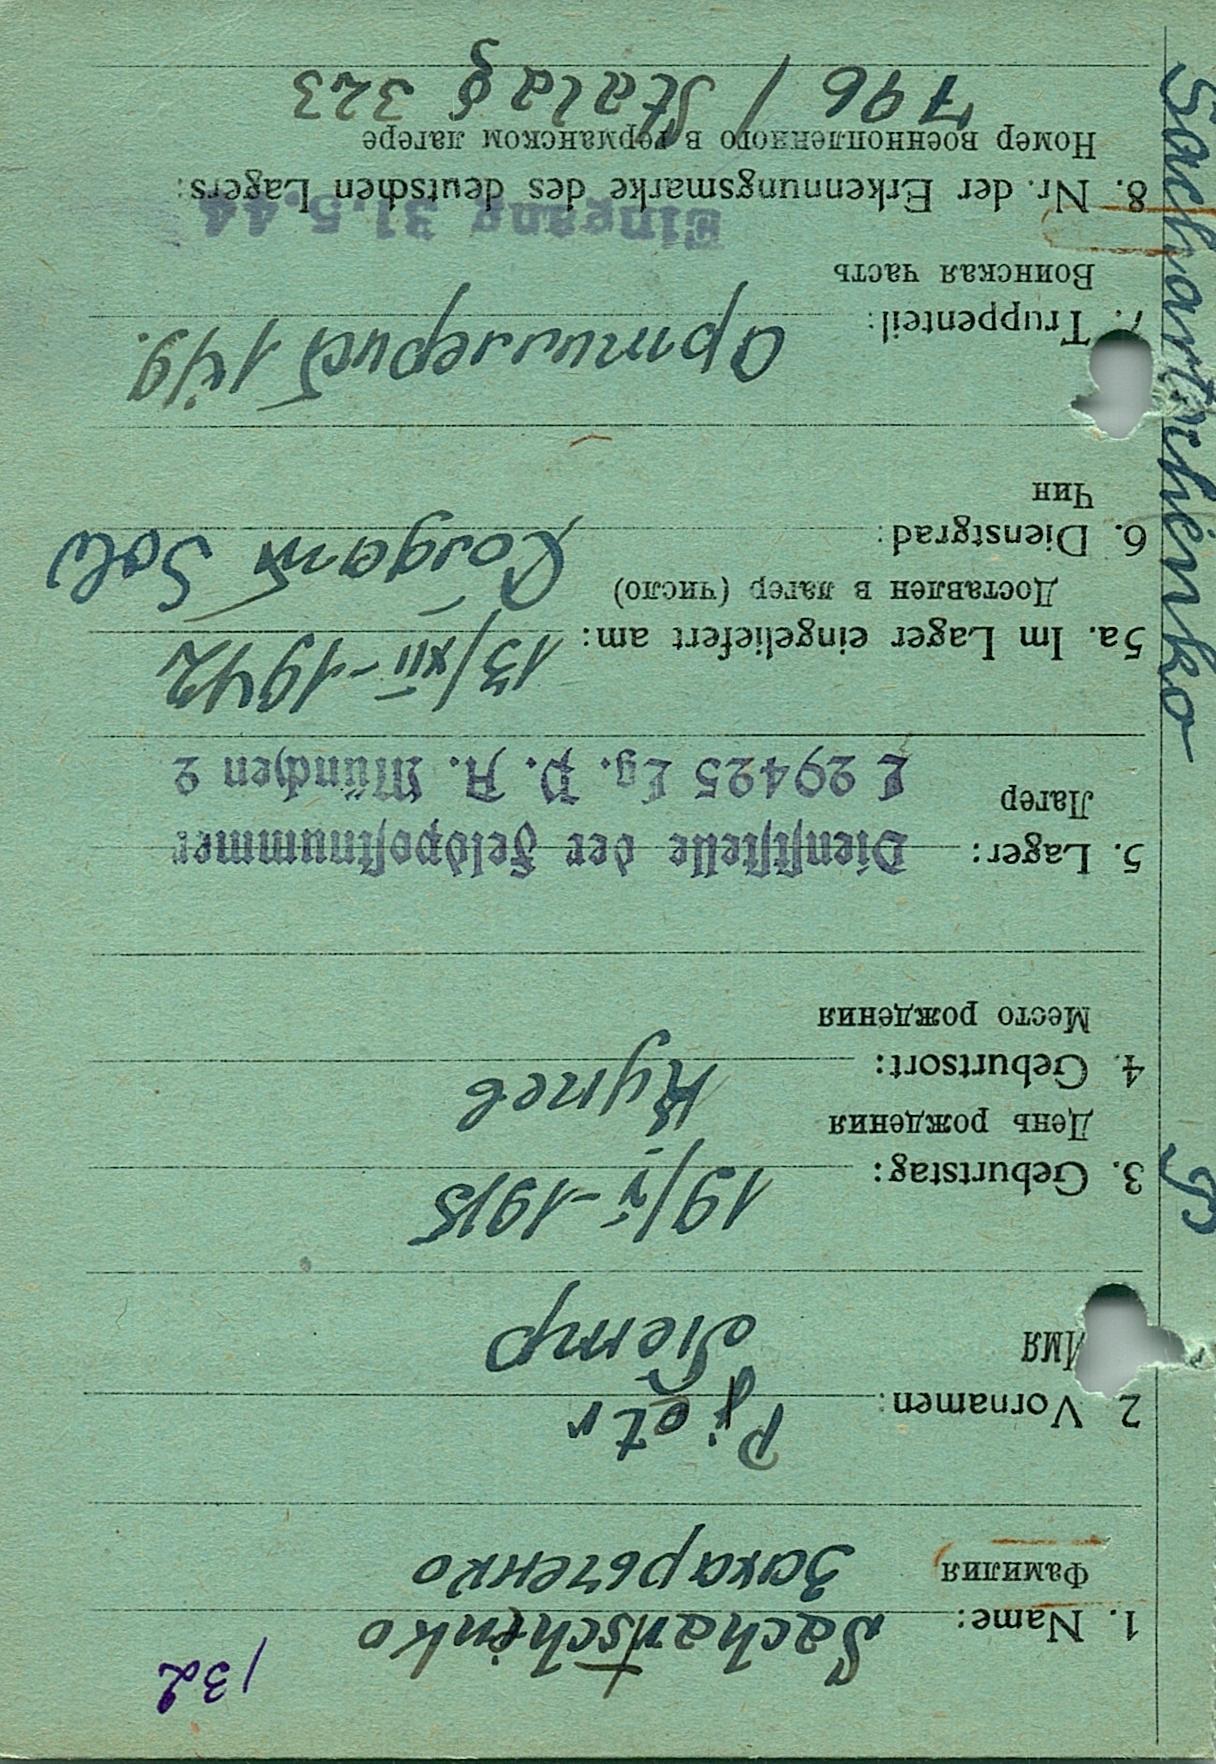 132
Sachartschenko
1. Name:
Фамилия
Захарьченко
Pjetr
2 Vornamen:
Имя
Петр
19/V-1915
3. Geburtstag:
День рождения
4. Geburtsort: Купев
Место рождения
5. Lager: Dienststelle der Feldpostnummer
Лагер
L 29425 Lg. P. A. München 2
5a. Im Lager eingeliefert am: 13/XII-1942
Доставлен в лагер (число)
6. Dienstgrad: Солдат Sold
Чин
7. Truppenteil: Артиллерист 149.
Воинская часть
Eingang 31.5.44
8. Nr. der Erkennungsmarke des deutschen Lagers:
Номер военнопленного в германском лагере
796 / Stalag 323
Sachartschenko